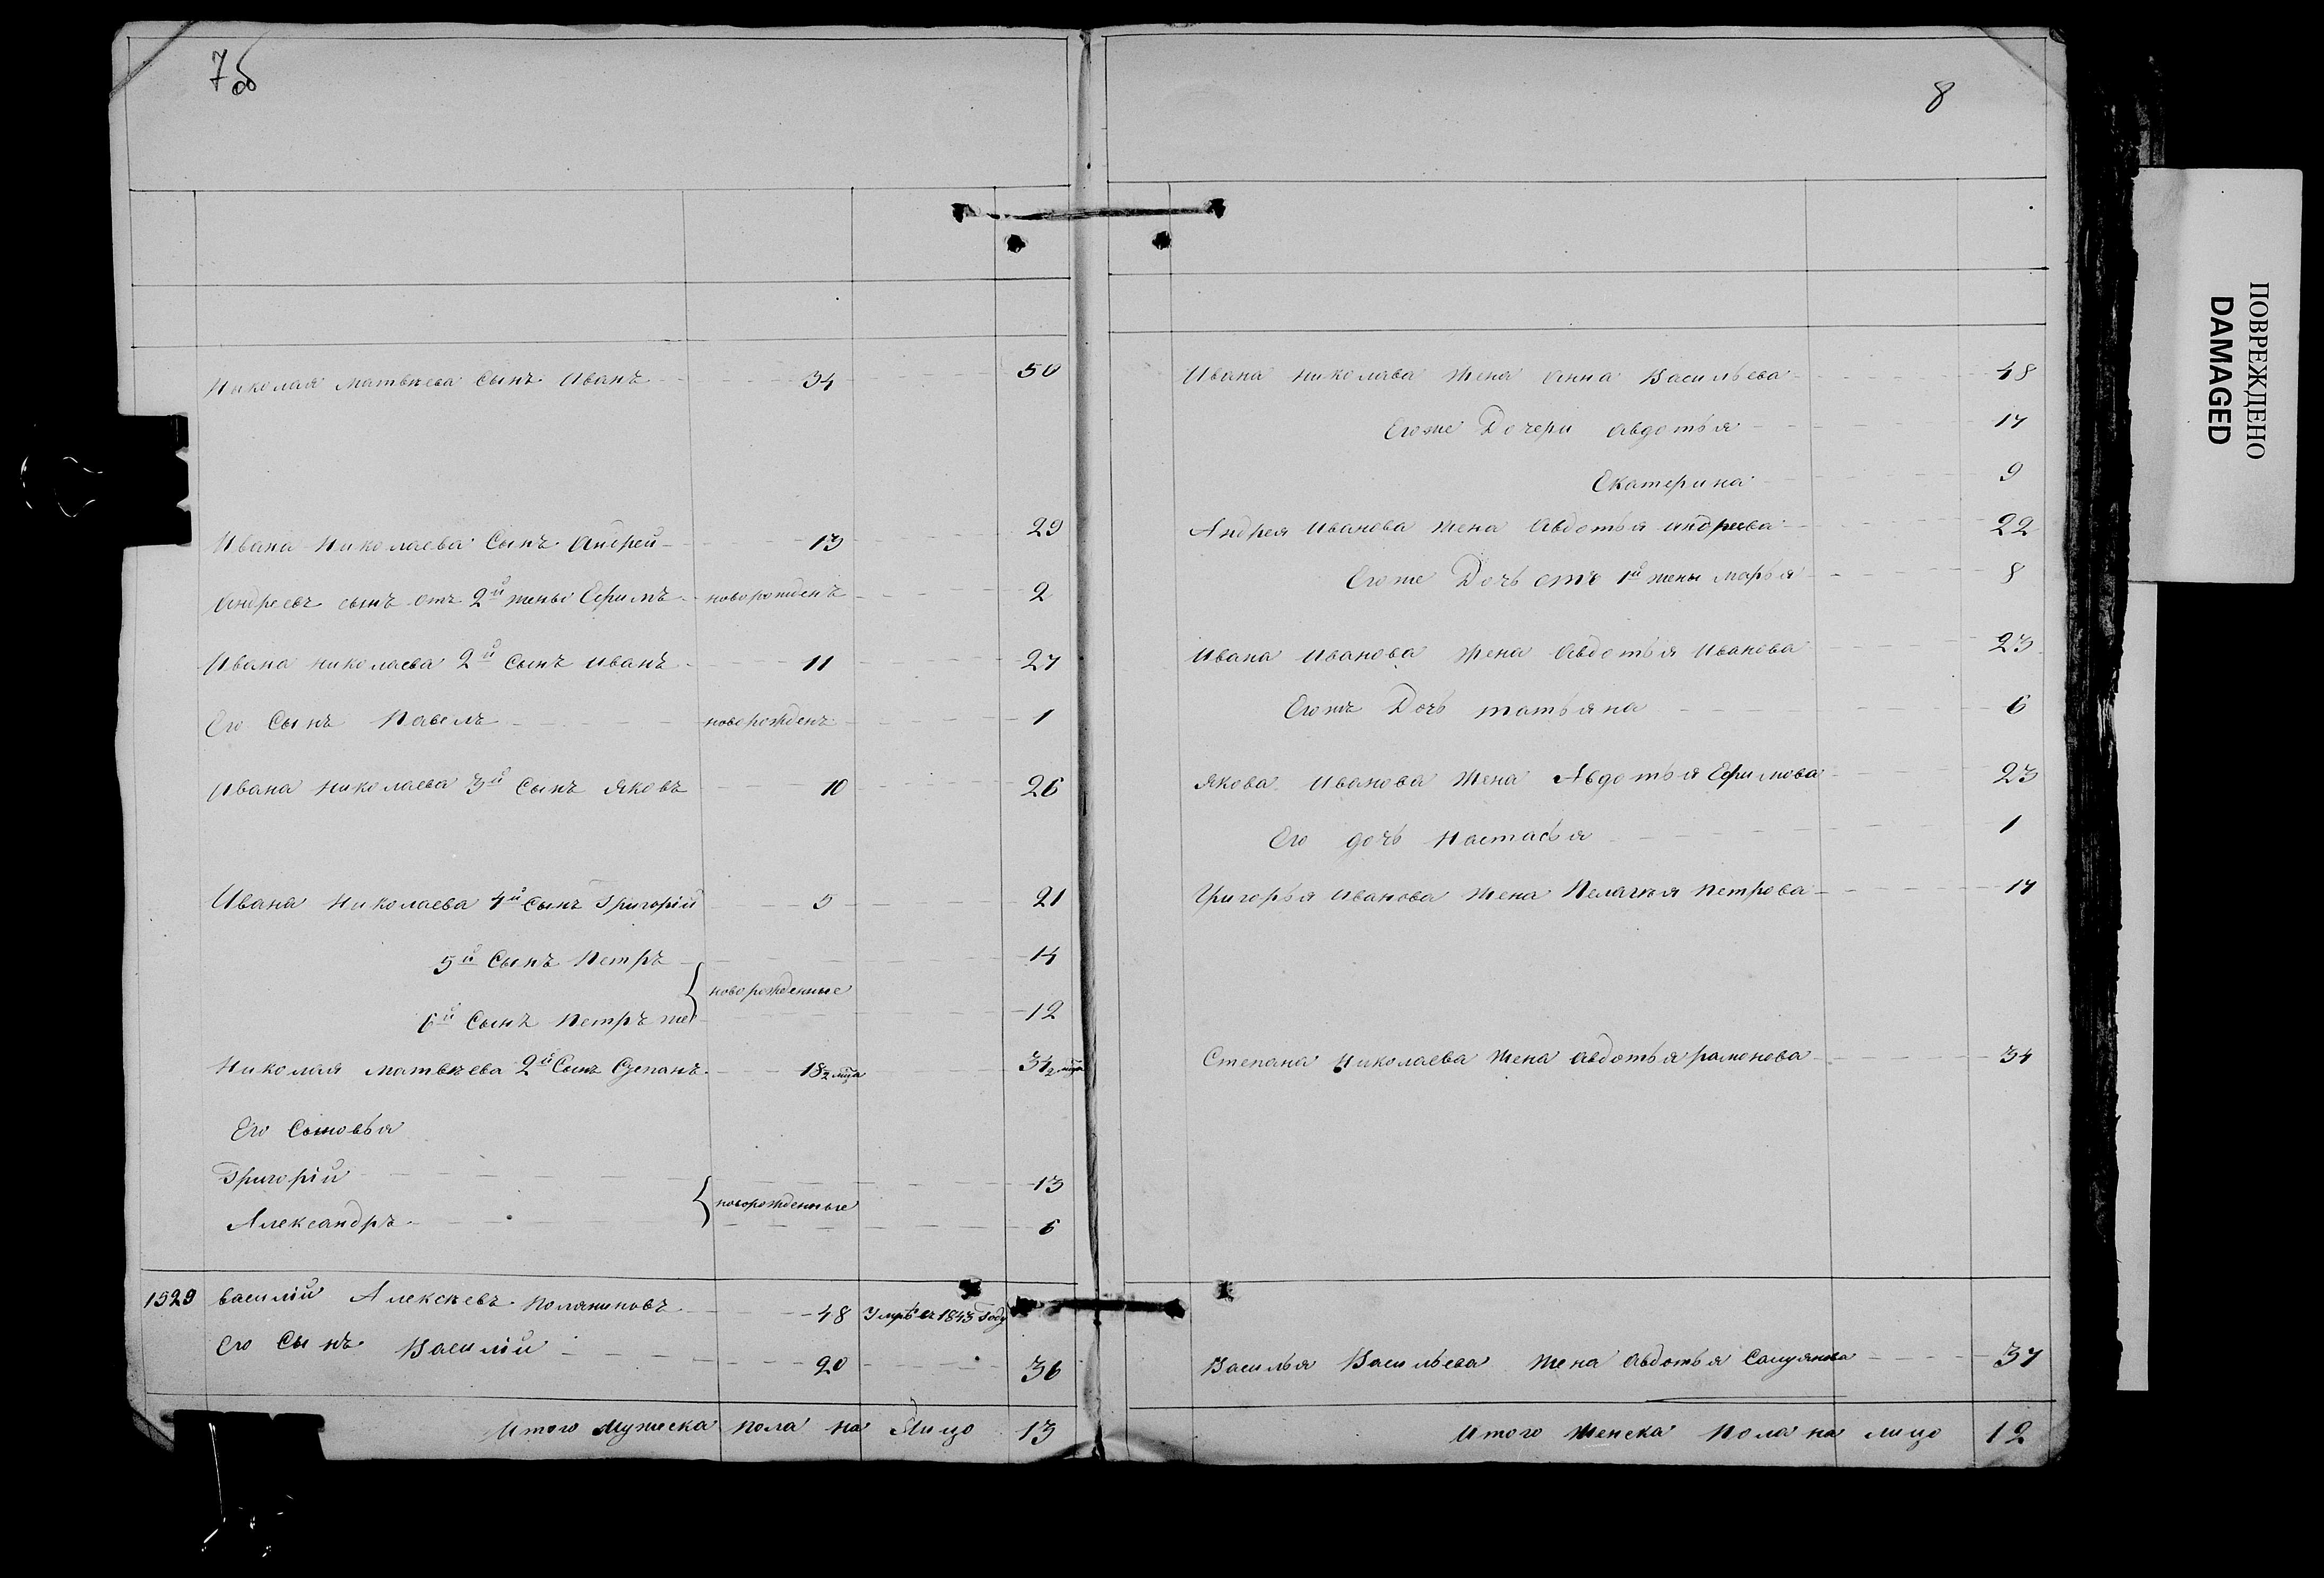 7об
Николая Матвѣева Сынъ Иванъ 34 50
Ивана Николаева Сынъ Андрей 13 29
Андреевъ сынъ отъ 2й жены Ефимъ новорожденъ 2
Ивана Николаева 2й Сынъ Иванъ 11 27
Его Сынъ Павелъ новорожденъ 1
Ивана Николаева 3й Сынъ Яковъ 10 26
Ивана Николаева 4й Сынъ Григорій 5 21
5й Сынъ Петръ 14
новорожденные
6й Сынъ Петръ же 12
Николая Матвѣева 2й Сынъ Степанъ 18 2 мца 34 2 мца
Его Сыновья
Григорій 13
новорожденные
Александръ 6
1529 Василій Алексѣевъ 48 Умрѣ въ 1843 Году
Его Сынъ Василій 20 36
Итого Мужеска пола на Лицо 13
8
Ивана Николава Жена Анна Васильева 48
Егоже Дочери Авдотья 17
Екатерина 9
Андрея Иванова жена Авдотья Андреева 22
Егоже Дочь отъ 1й жены Марья 8
Ивана Иванова жена Авдотья Иванова 23
Егожъ Дочь татьяна 6
Якова Иванова Жена Авдотья Ефимова 23
Его дочь Настасья 1
Григорья Иванова жена Пелагѣя Петрова 17
Степана Николаева Жена Авдотья рамонова 34
Василья Васильева жена Авдотья 37
Итого Женска Пола на лицо 12
ПОВРЕЖДЕНО
DAMAGED